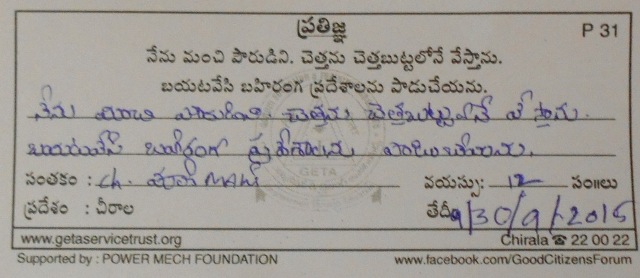 ప్రతిజ్ఞ
P 31
నేను మంచి పౌరుడిని. చెత్తను చెత్తబుట్టలోనే వేస్తాను.
బయటవేసి బహిరంగ ప్రదేశాలను పాడుచేయను.
నేను మంచి పౌరుడిని. చెత్తను చెత్తబుట్టలోనే వేస్తాను.
బయటవేసి బహిరంగ ప్రదేశాలను పాడుచేయను.
GETA
సంతకం : ch.
వయస్సు: 12 సం॥లు
ప్రదేశం : చీరాల
తేదీ: 30/9/2015
www.getaservicetrust.org
Chirala ☎ 22 00 22
Supported by : POWER MECH FOUNDATION
www.facebook.com/GoodCitizensForum